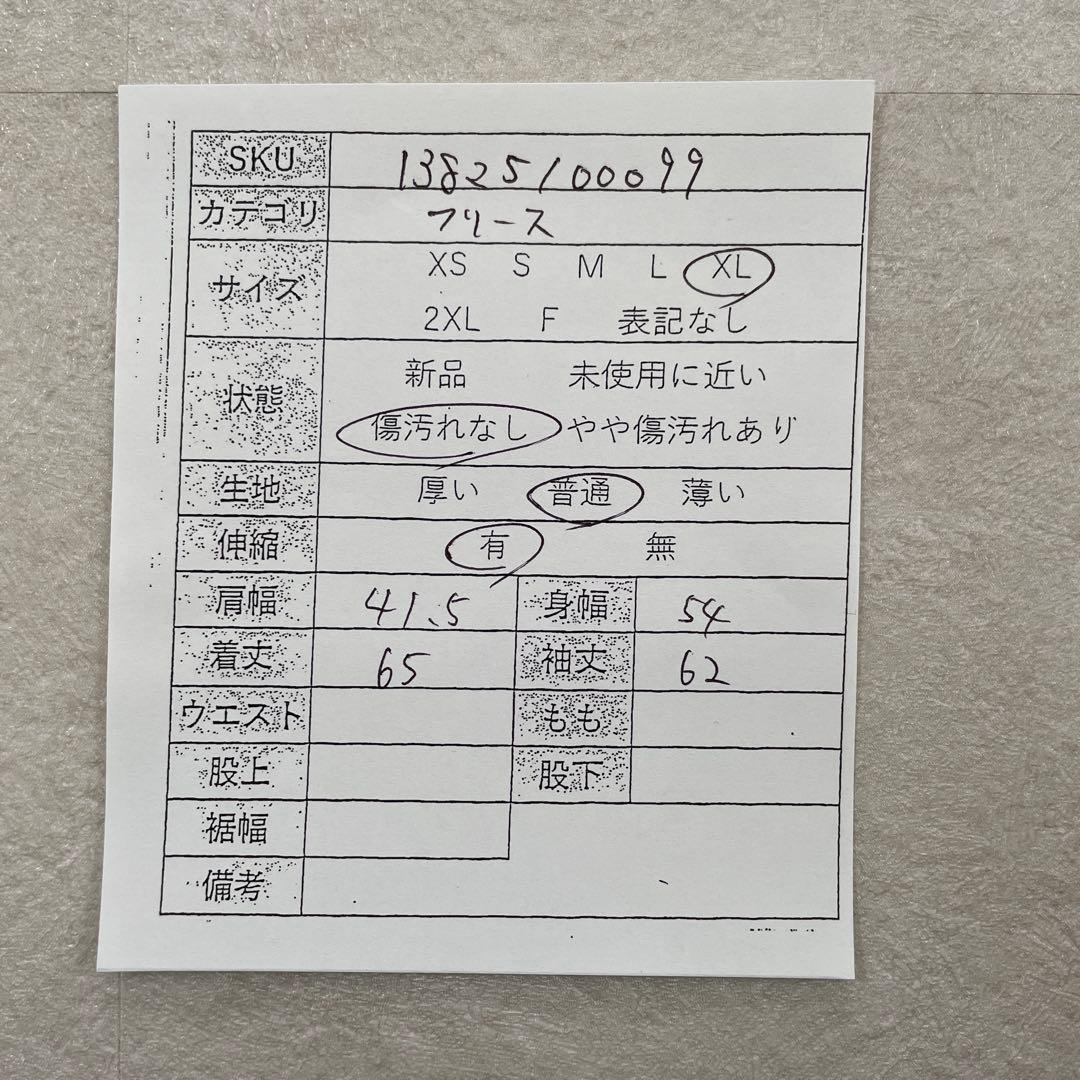 SKU 13825100099
カテゴリ フリース
サイズ XS S M L XL
2XL F 表記なし
状態 新品 未使用に近い
傷汚れなし やや傷汚れあり
生地 厚い 普通 薄い
伸縮 有 無
肩幅 41.5 身幅 54
着丈 65 袖丈 62
ウエスト もも
股上 股下
裾幅
備考